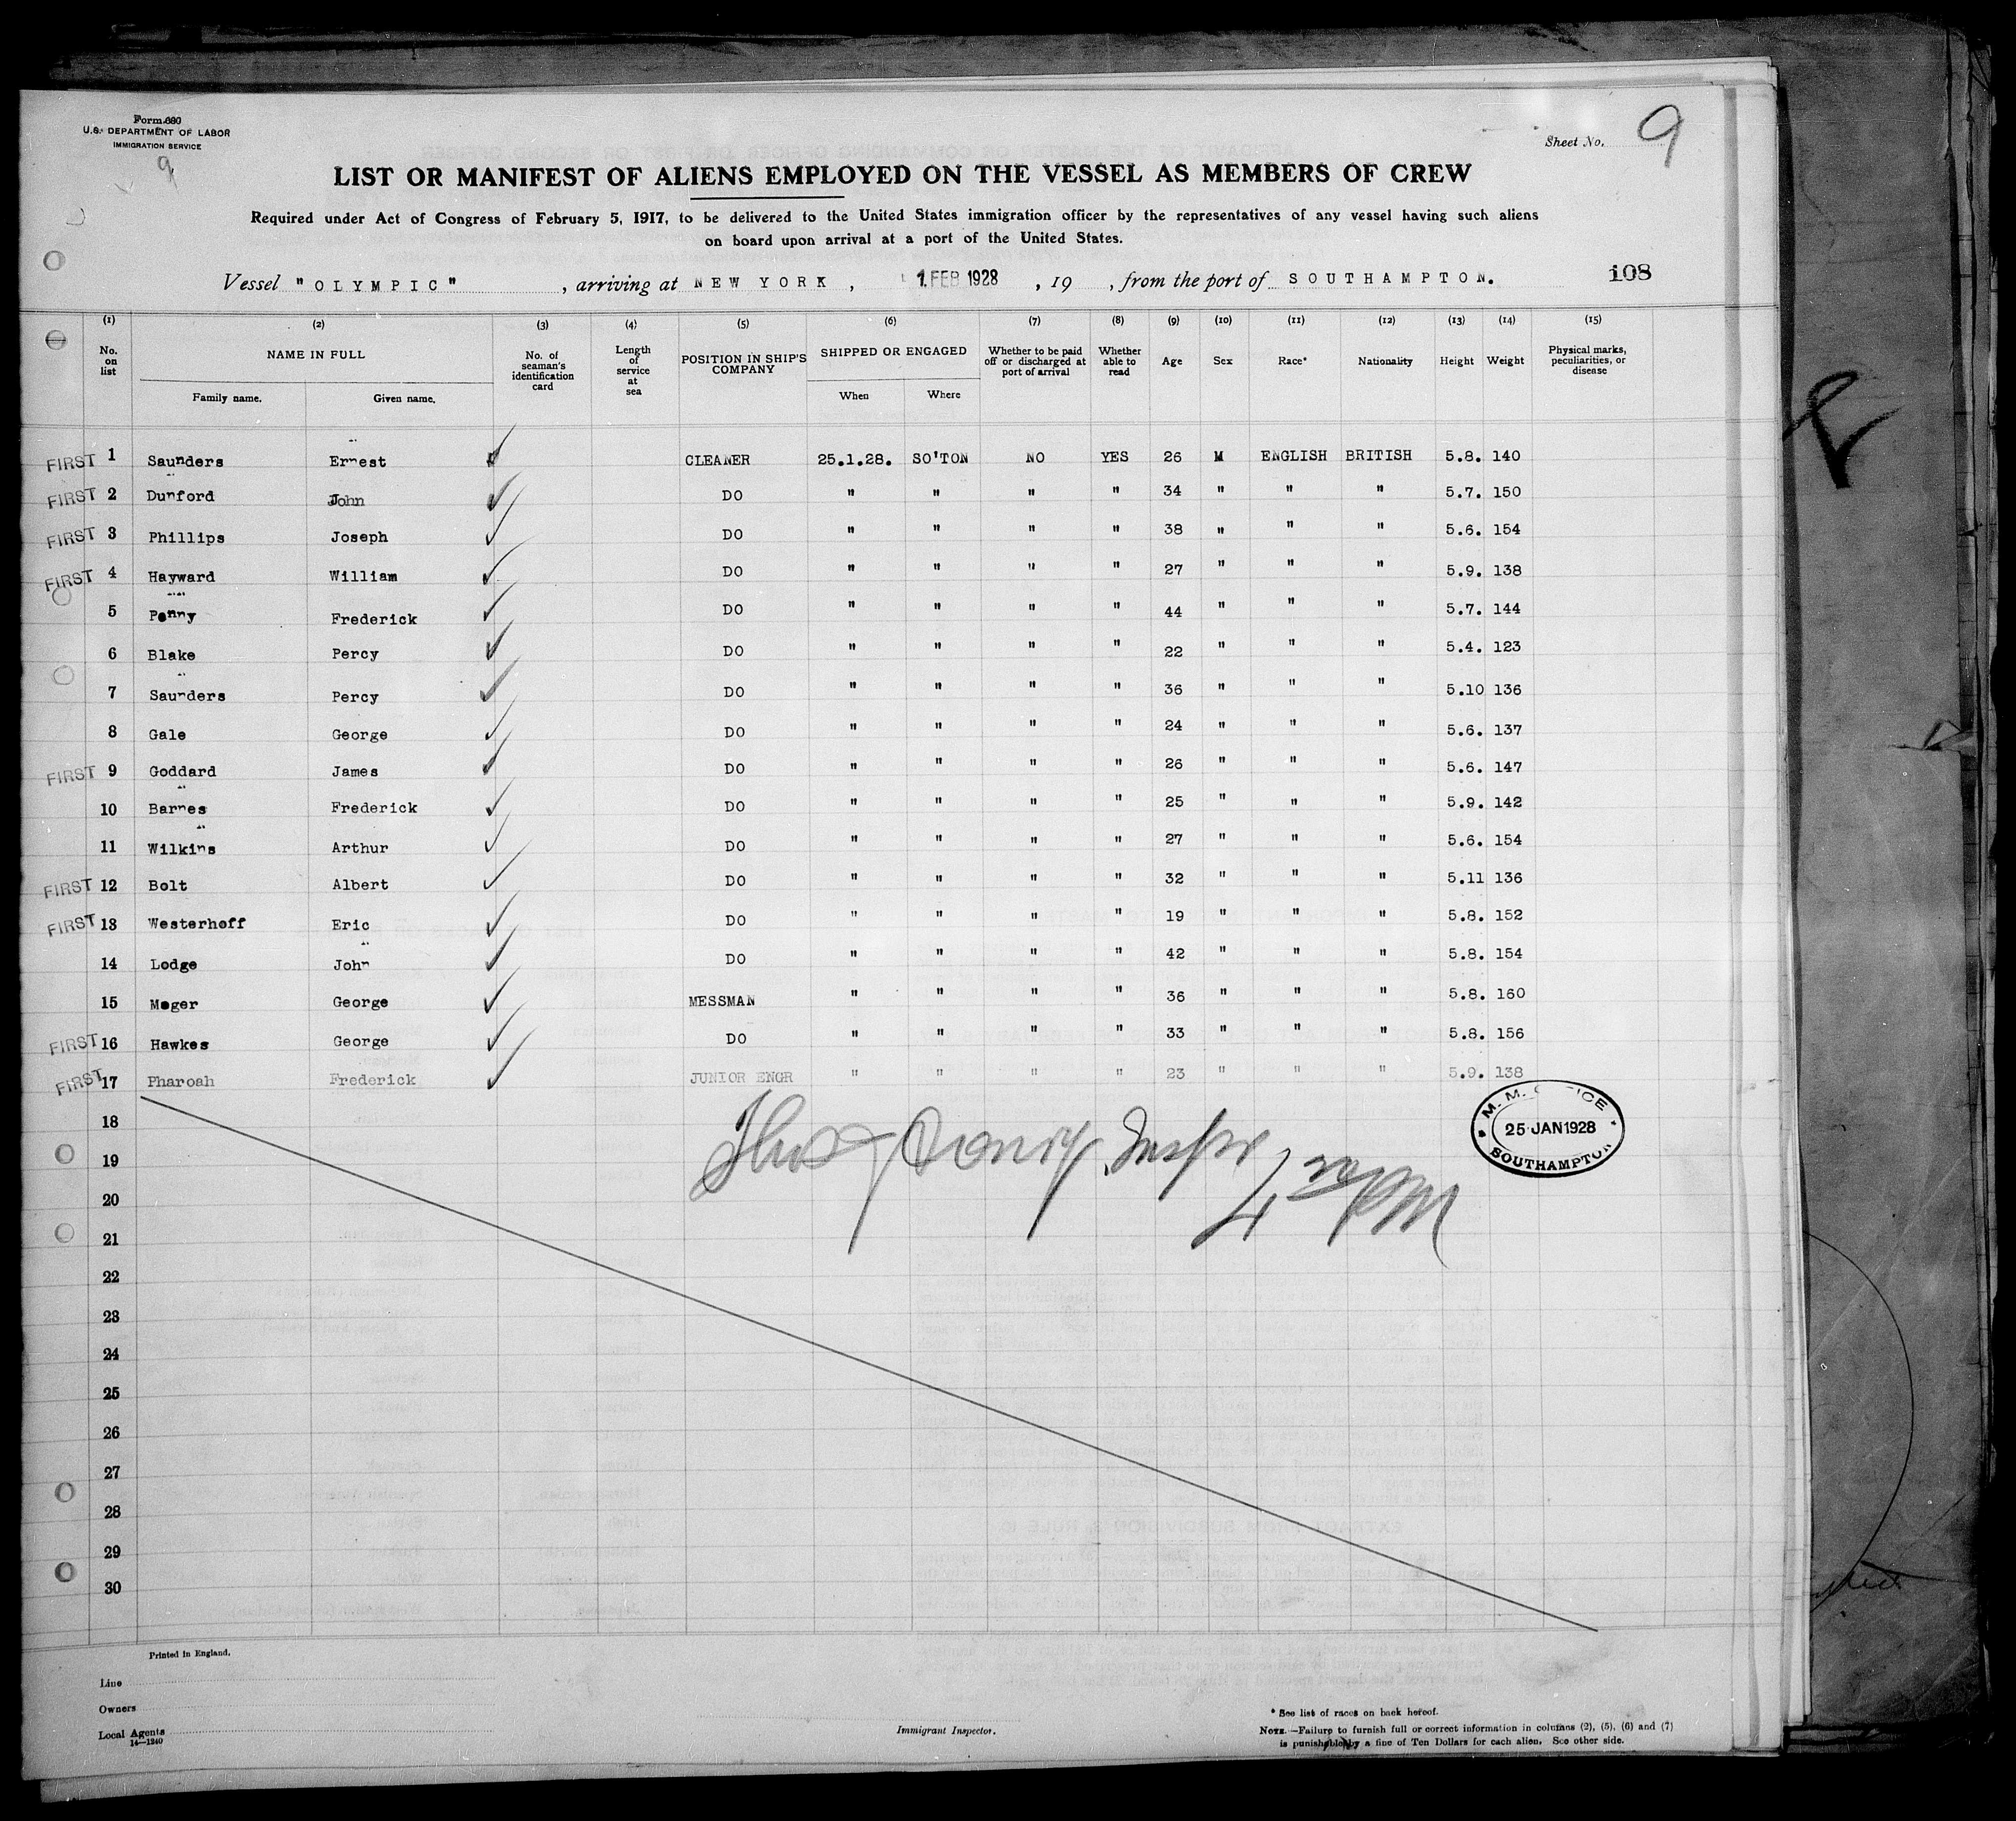 Form 680
U.S. DEPARTMENT OF LABOR
IMMIGRATION SERVICE
9
Sheet No. 9
LIST OR MANIFEST OF ALIENS EMPLOYED ON THE VESSEL AS MEMBERS OF CREW
Required under Act of Congress of February 5, 1917, to be delivered to the United States immigration officer by the representatives of any vessel having such aliens
on board upon arrival at a port of the United States.
Vessel "OLYMPIC" , arriving at NEW YORK , 1 FEB 1928 , 19 , from the port of SOUTHAMPTON. 108
(1) (2) (3) (4) (5) (6) (7) (8) (9) (10) (11) (12) (13) (14) (15)
No. on list NAME IN FULL No. of seaman's identification card Length of service at sea POSITION IN SHIP'S COMPANY SHIPPED OR ENGAGED Whether to be paid off or discharged at port of arrival Whether able to read Age Sex Race* Nationality Height Weight Physical marks, peculiarities, or disease
Family name. Given name. When Where
FIRST 1 Saunders Ernest CLEANER 25.1.28. SO'TON NO YES 26 M ENGLISH BRITISH 5.8. 140
FIRST 2 Dunford John DO " " " " 34 " " " 5.7. 150
FIRST 3 Phillips Joseph DO " " " " 38 " " " 5.6. 154
FIRST 4 Hayward William DO " " " " 27 " " " 5.9. 138
5 Penny Frederick DO " " " " 44 " " " 5.7. 144
6 Blake Percy DO " " " " 22 " " " 5.4. 123
7 Saunders Percy DO " " " " 36 " " " 5.10 136
8 Gale George DO " " " " 24 " " " 5.6. 137
FIRST 9 Goddard James DO " " " " 26 " " " 5.6. 147
10 Barnes Frederick DO " " " " 25 " " " 5.9. 142
11 Wilkins Arthur DO " " " " 27 " " " 5.6. 154
FIRST 12 Bolt Albert DO " " " " 32 " " " 5.11 136
FIRST 13 Westerhoff Eric DO " " " " 19 " " " 5.8. 152
14 Lodge John DO " " " " 42 " " " 5.8. 154
15 Meger George MESSMAN " " " " 36 " " " 5.8. 160
FIRST 16 Hawkes George DO " " " " 33 " " " 5.8. 156
FIRST 17 Pharoah Frederick JUNIOR ENGR " " " " 23 " " " 5.9. 138
18
19
20
21
22
23
24
25
26
27
28
29
30
25 JAN 1928
SOUTHAMPTON
Printed in England.
Line
Owners
Local Agents
14—1240
Immigrant Inspector.
* See list of races on back hereof.
NOTE.—Failure to furnish full or correct information in columns (2), (5), (6) and (7)
is punishable by a fine of Ten Dollars for each alien. See other side.